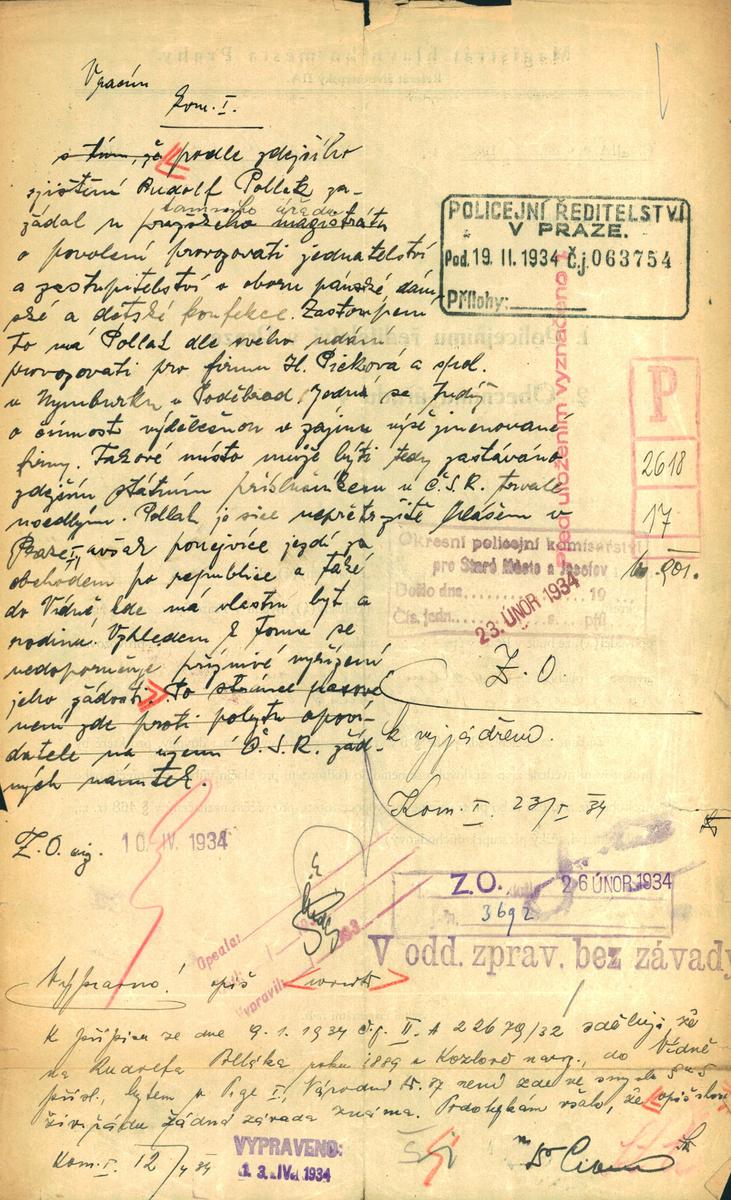 Vracím
Kom. I.
s tím, že podle zdejšího
zjištění Rudolf Pollak za-
tamního úřadu
žádal u pražského magistrátu
o povolení provozovati jednatelství
a zastupitelství v oboru pánské dám
ské a dětské konfekce. Zastoupení
to má Pollak dle svého udání
provozovati pro firmu H. Picková a spol.
v Nymburku u Poděbrad. Jedná se tudíž
o činnost výdělečnou v zájmu výše jmenované
firmy. Takové místo může býti tedy zastáváno
zdejším státním příslušníkem v Č.S.R. trvale
usedlým. Pollak je sice nepřetržitě hlášen v
Praze I, avšak ponejvíce jezdí za
obchodem po republice a také
do Vídně, kde má vlastní byt a
rodinu. Vzhledem k tomu se
nedoporučuje příznivé vyřízení
jeho žádosti. Po stránce pasové
není zde proti pobytu
na území Č.S.R. žád-
ných námitek.
POLICEJNÍ ŘEDITELSTVÍ
V PRAZE.
Pod. 19. II. 1934 č.j. 063754
Přílohy:
Před uložením vyznačeno
P
2618
17
Okresní policejní komisařství
pro Staré Město a Josefov
Došlo dne 19
Čís. jedn. s příl
23. ÚNOR 1934
Z. O.
k vyjádření.
Kom. I. 23/I 34
Z. O. 10. IV. 1934
Z.O. 26 ÚNOR 1934
3692
V odd. zprav. bez závady
Opsala:
Vypravil:
Vypraveno! opiš
K přípisu ze dne 9. 1. 1934 č.j. II. A 22679/32 sděluji, že
na Rudolfa Polláka roku 1889 v Kozlově naroz., do Vídně
přísl., bytem v Praze I, Národní tř. 37 není zde ve smyslu § 5
živ. řádu žádná závada známa. Podotýkám však, že opiš
Kom. I. 12/4 34
VYPRAVENO:
13. IV. 1934